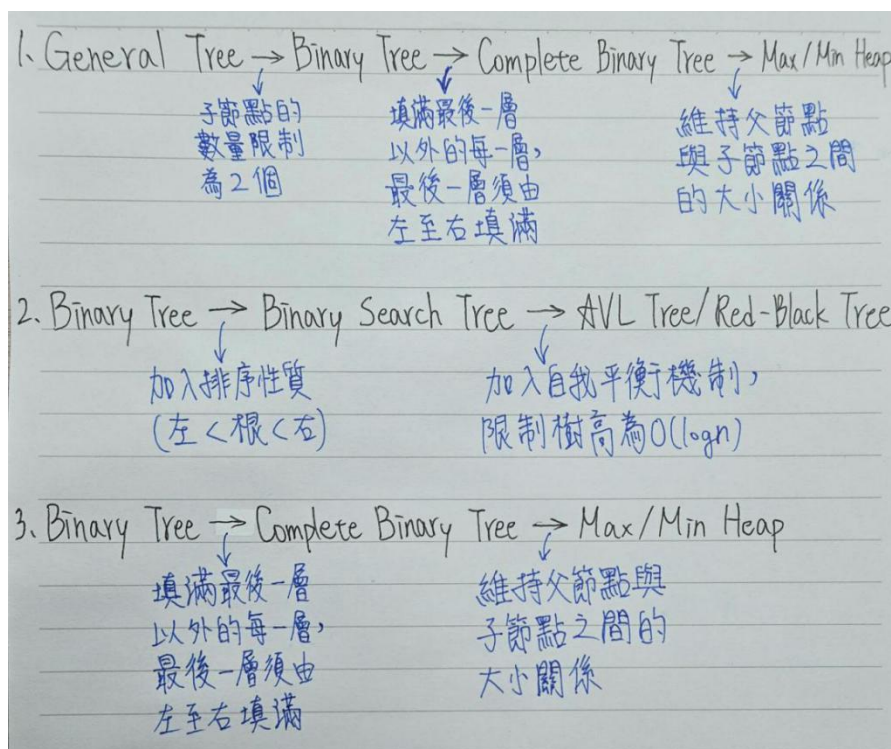 1. General Tree → Binary Tree → Complete Binary Tree → Max/Min Heap
子節點的
數量限制
為2個
填滿最後一層
以外的每一層,
最後一層須由
左至右填滿
維持父節點
與子節點之間
的大小關係
2. Binary Tree → Binary Search Tree → AVL Tree/Red-Black Tree
加入排序性質
(左<根<右)
加入自我平衡機制,
限制樹高為O(logn)
3. Binary Tree → Complete Binary Tree → Max/Min Heap
填滿最後一層
以外的每一層,
最後一層須由
左至右填滿
維持父節點與
子節點之間的
大小關係